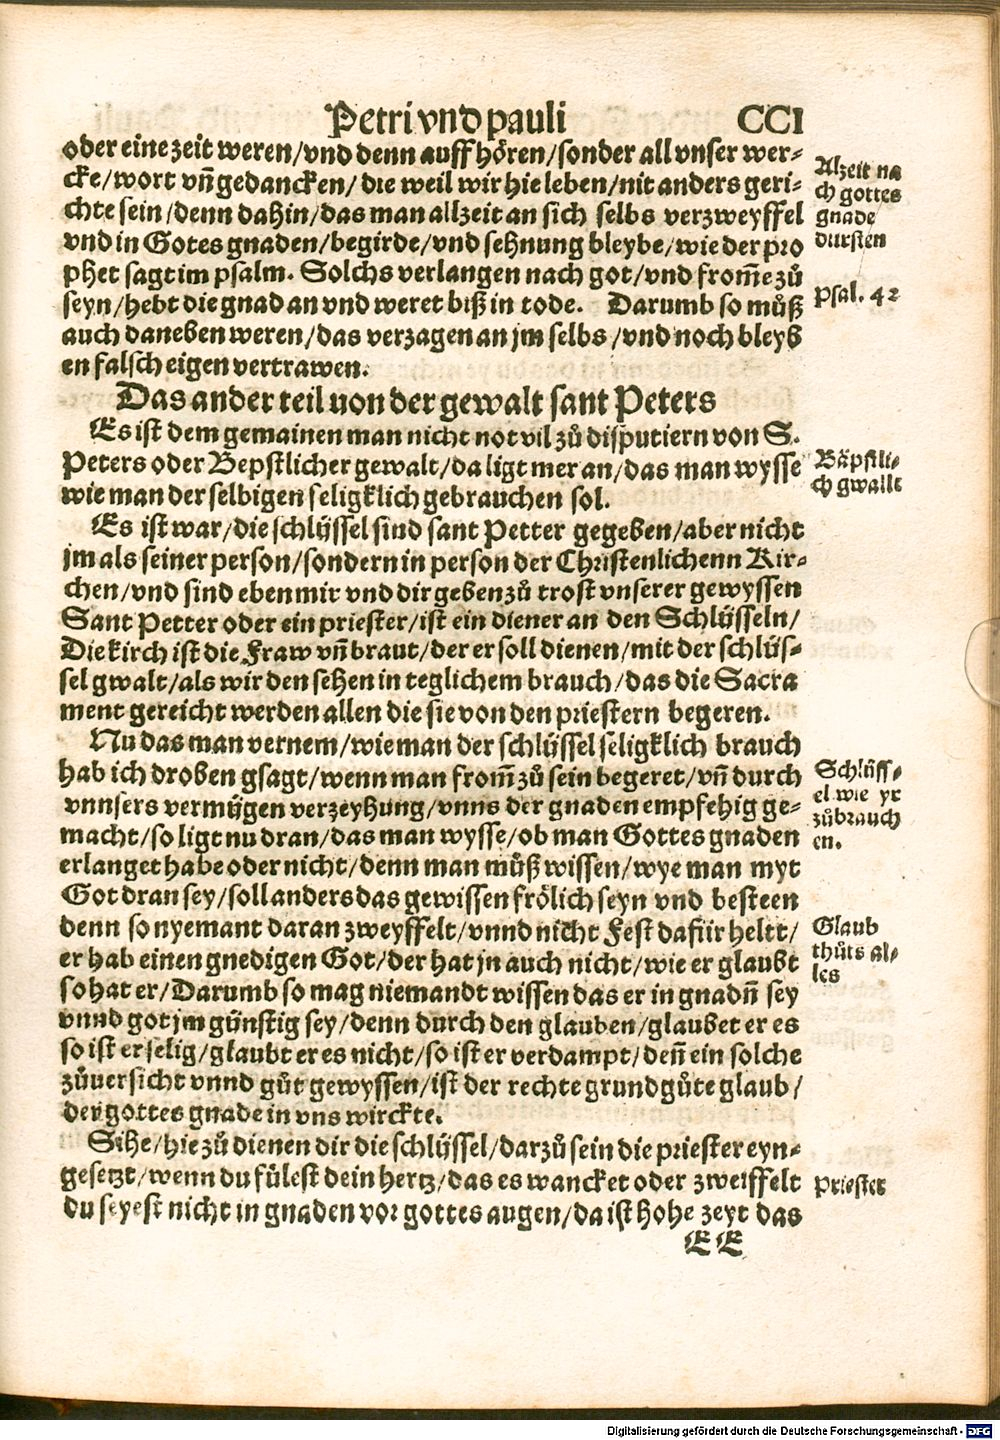 Petri vnd pauli CCI
oder eine zeit weren/vnd denn auff hören/sonder all vnser wer-
cke/wort vñ gedancken/ die weil wir hie leben/nit anders geri-
chte sein/denn dahin/das man allzeit an sich selbs verzweyffel
vnd in Gotes gnaden/begirde/vnd sehnung bleybe/wie der pro
phet sagt im psalm. Solchs verlangen nach got/vnd from̃e zů
seyn/hebt die gnad an vnd weret biß in tode. Darumb so můß
auch daneben weren/das verzagen an jm selbs/vnd noch bleyb
en falsch eigen vertrawen.
Alzeit na
ch gottes
gnade
dursten
Psal. 42
Das ander teil von der gewalt sant Peters
Es ist dem gemainen man nicht not vil zů disputiern von S.
Peters oder Bepstlicher gewalt/da ligt mer an/das man wysse
wie man der selbigen seligklich gebrauchen sol.
Bäpstli-
ch gwallt
Es ist war/die schlÿssel sind sant Petter gegeben/aber nicht
jm als seiner person/sondern in person der Christenlichenn Kir-
chen/vnd sind eben mir vnd dir geben zů trost vnserer gewyssen
Sant Petter oder ein priester/ist ein diener an den Schlÿsseln/
Die kirch ist die Fraw vñ braut/der er soll dienen/mit der schlüs-
sel gwalt/als wir den sehen in teglichem brauch/das die Sacra
ment gereicht werden allen die sie von den priestern begeren.
Nu das man vernem/wie man der schlÿssel seligklich brauch
hab ich droben gsagt/wenn man from̃ zů sein begeret/vñ durch
vnnsers vermÿgen verzeyhung/vnns der gnaden empfehig ge-
macht/so ligt nu dran/das man wysse/ob man Gottes gnaden
erlanget habe oder nicht/denn man můß wissen/wye man myt
Got dran sey/soll anders das gewissen frölich seyn vnd besteen
denn so nyemant daran zweyffelt/vnnd nicht Fest dafür heltt/
er hab einen gnedigen Got/der hat jn auch nicht/wie er glaubt
so hat er/Darumb so mag niemandt wissen das er in gnadñ sey
vnnd got jm günstig sey/denn durch den glauben/glaubet er es
so ist er selig/glaubt er es nicht/so ist er verdampt/deñ ein solche
zůuersicht vnnd gůt gewyssen/ist der rechte grundgůte glaub/
der gottes gnade in vns wirckte.
Schlüss-
el wie yr
zůbrauch
en.
Glaub
thůts al-
les
Sihe/hie zů dienen dir die schlÿssel/darzů sein die priester eyn-
gesetzt/wenn du fülest dein hertz/das es wancket oder zweiffelt
du seyest nicht in gnaden vor gottes augen/da ist hohe zeyt das
Priester
EE
Digitalisierung gefördert durch die Deutsche Forschungsgemeinschaft - DFG